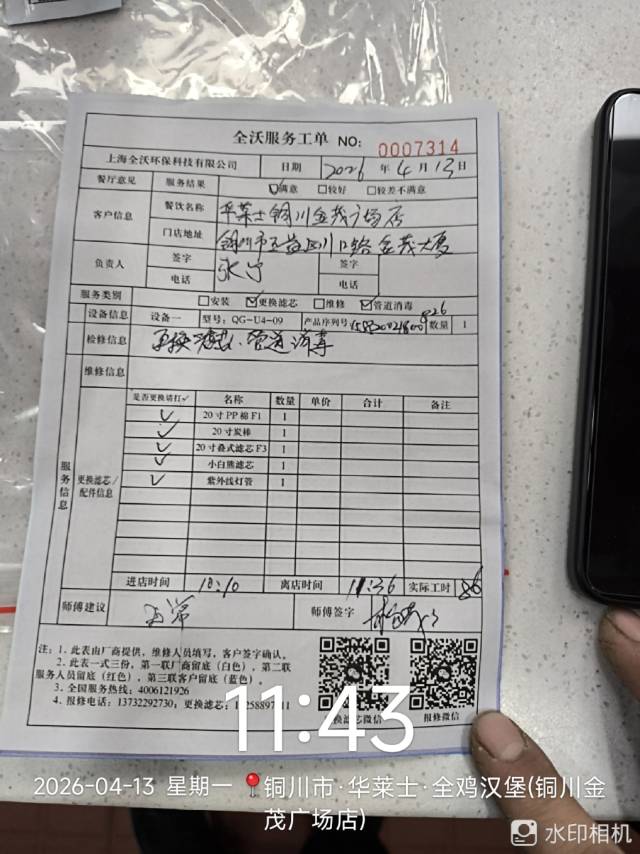 全沃服务工单 NO: 0007314
上海全沃环保科技有限公司 日期 2026 年 4 月 13 日
餐厅意见 服务结果 ☑满意 □较好 □较差不满意
客户信息 餐饮名称 华莱士铜川金茂广场店
门店地址 铜川市王益区川口路金茂大厦
负责人 签字 签字
电话 电话
服务类别 □安装 ☑更换滤芯 □维修 ☑管道消毒
设备信息 设备一 型号: QG-U4-09 产品序列号 数量 1
检修信息 更换滤芯、管道消毒
维修信息
服务信息 更换滤芯/配件信息
是否更换请打✓ 名称 数量 单价 合计 备注
✓ 20寸PP棉F1 1
✓ 20寸炭棒 1
✓ 20寸叠式滤芯F3 1
✓ 小白熊滤芯 1
✓ 紫外线灯管 1
进店时间 10:10 离店时间 11:36 实际工时 86
师傅建议 正常 师傅签字
注: 1. 此表由厂商提供, 维修人员填写, 客户签字确认。
2. 此表一式三份, 第一联厂商留底(白色), 第二联
服务人员留底(红色), 第三联客户留底(蓝色)。
3. 全国服务热线: 4006121926
4. 报修电话: 13732292730; 更换滤芯:
换滤芯微信 报修微信
11:43
2026-04-13 星期一 铜川市·华莱士·全鸡汉堡(铜川金
茂广场店)
水印相机